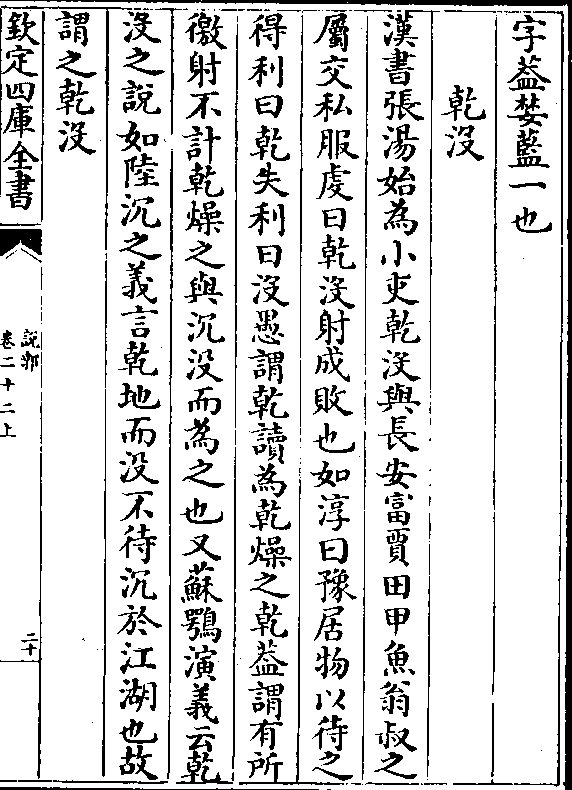 字葢婪藍一也
乾沒
漢書張湯始為小吏乾沒與長安富賈田甲魚翁叔之
屬交私服虔曰乾沒射成敗也如淳曰豫居物以待之
得利曰乾失利曰沒愚謂乾讀為乾燥之乾葢謂有所
徼射不計乾燥之與沉沒而為之也又蘇鶚演義云乾
沒之說如陸沉之義言乾地而沒不待沉於江湖也故
謂之乾沒
欽定四庫全書
說郛
卷二十二上
二十